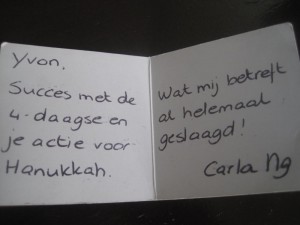 Yvon,
Succes met de
4-daagse en
je actie voor
Hanukkah.
Wat mij betreft
al helemaal
geslaagd!
Carla Ng